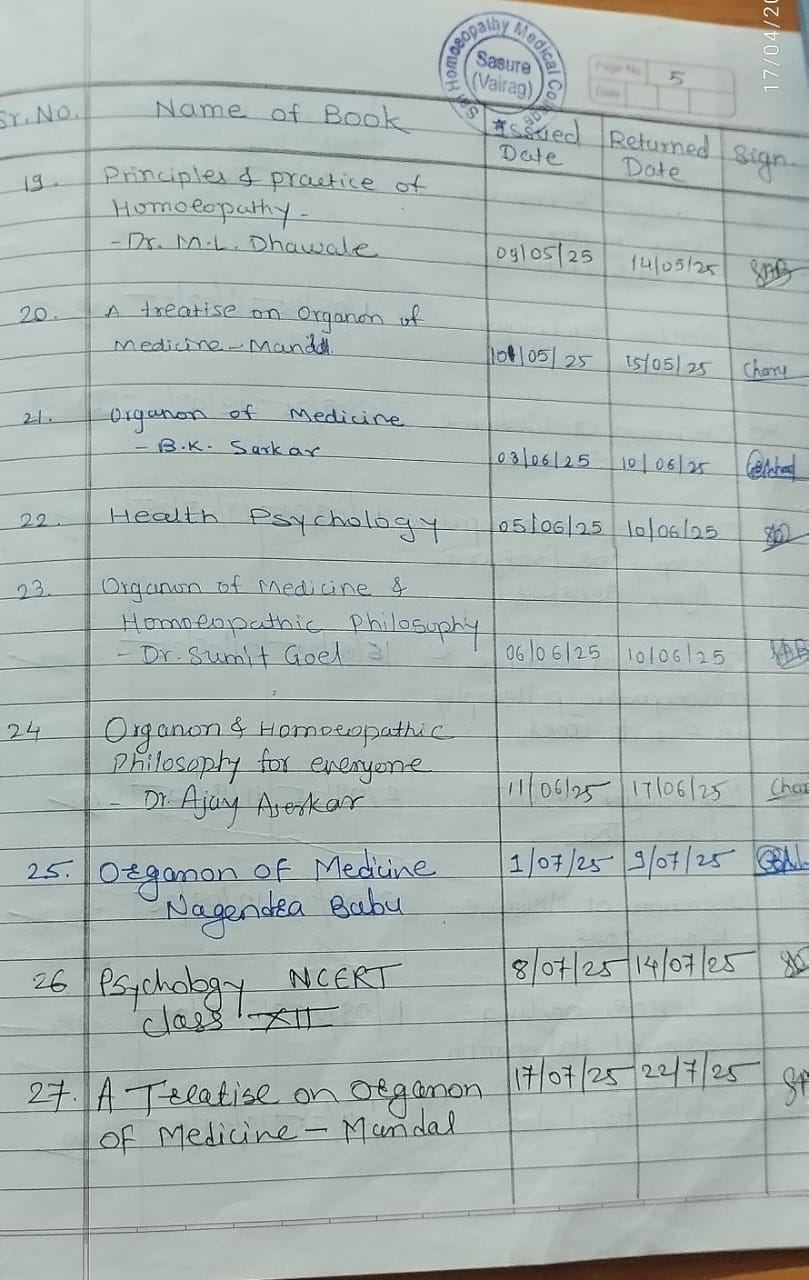 Homoeopathy Medical College
Sasure
(Vairag)
Page No. 5
Date
17/04/20
Sr. No. Name of Book Issued Date Returned Date Sign
19. Principles & practice of
Homoeopathy -
- Dr. M.L. Dhawale 09/05/25 14/05/25
20. A treatise on Organon of
Medicine - Mandal 10/05/25 15/05/25
21. Organon of Medicine
- B.K. Sarkar 03/06/25 10/06/25
22. Health Psychology 05/06/25 10/06/25
23. Organon of Medicine &
Homoeopathic Philosophy
- Dr. Sumit Goel 06/06/25 10/06/25
24 Organon & Homoeopathic
Philosophy for everyone
- Dr. Ajay 11/06/25 17/06/25
25. Organon of Medicine 1/07/25 9/07/25
Nagendra Babu
26 Psychology NCERT 8/07/25 14/07/25
class XII
27. A Treatise on Organon 17/07/25 22/7/25
of Medicine - Mandal